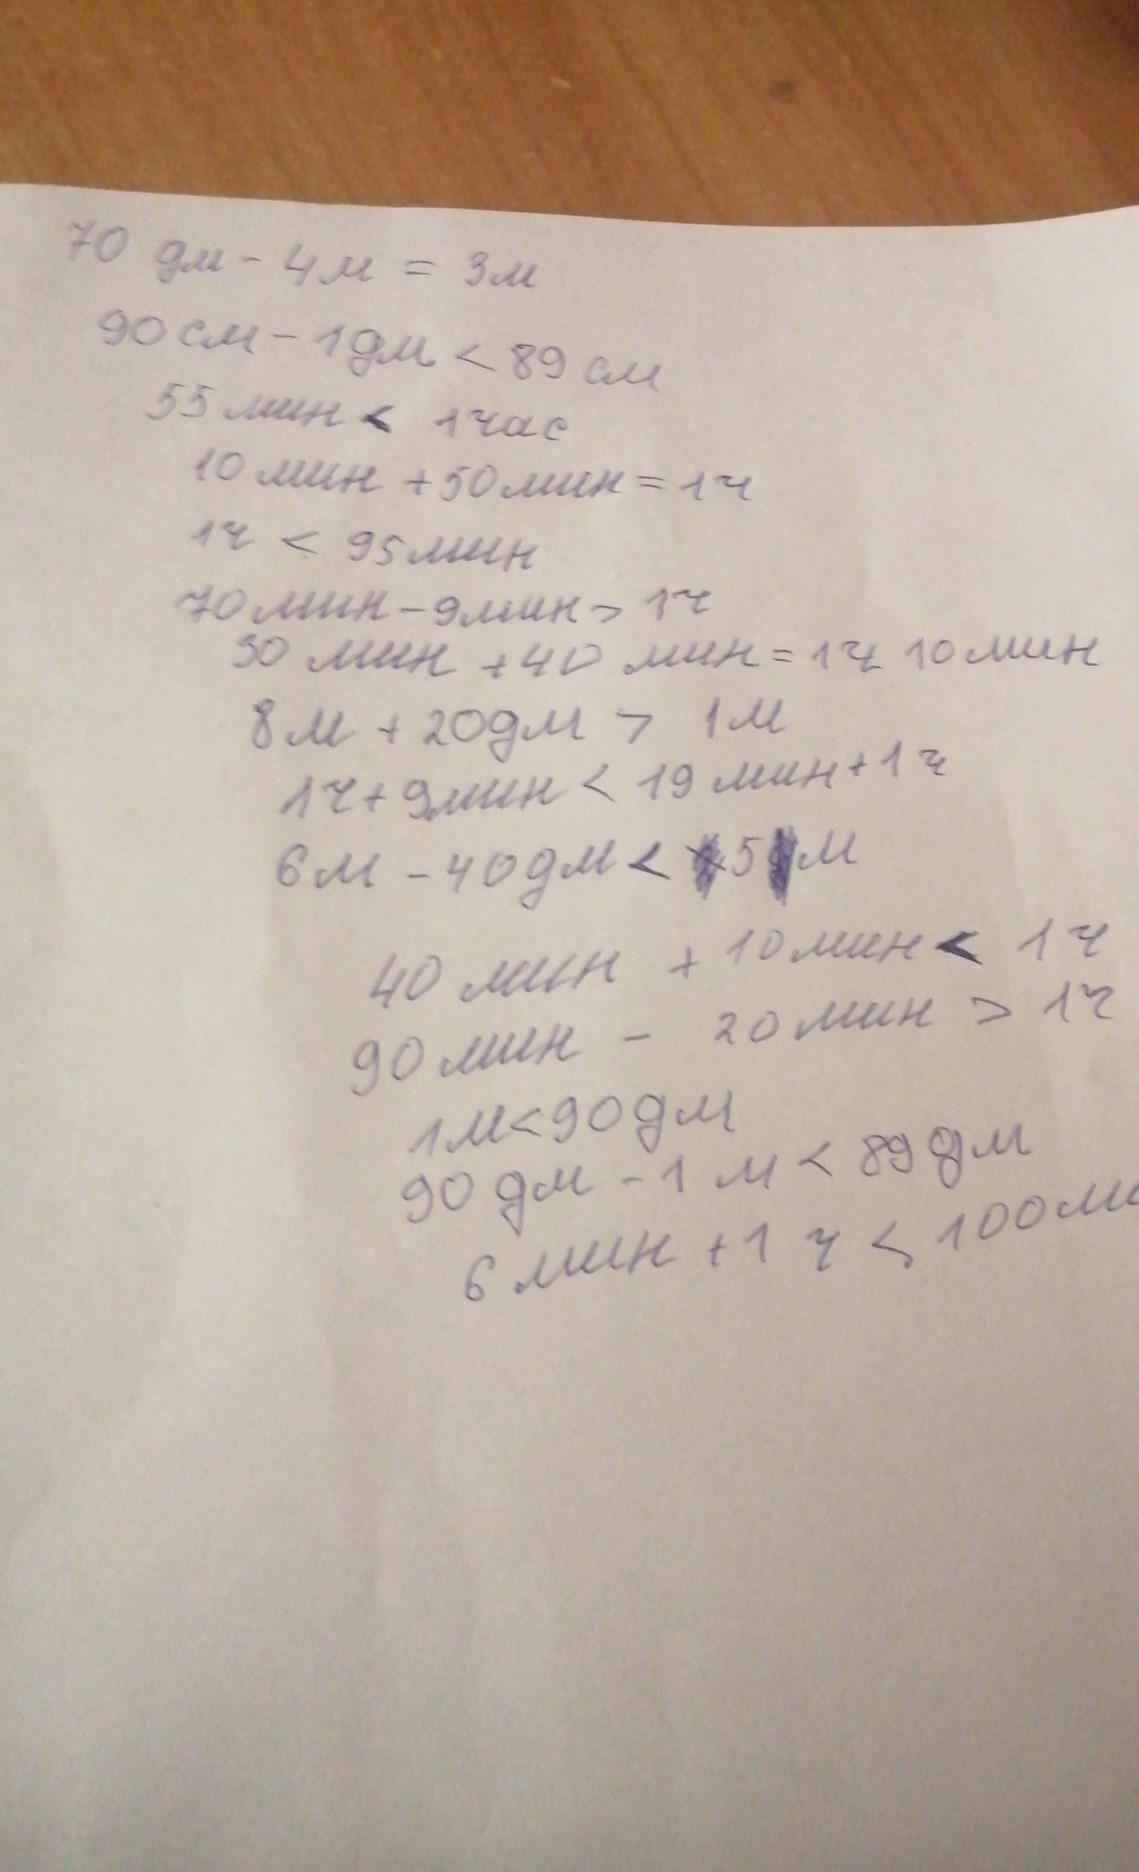 70 дм - 4м = 3м
90 см - 1дм < 89 см
55 мин < 1 час
10 мин + 50 мин = 1ч
1ч < 95 мин
70 мин - 9 мин > 1ч
30 мин + 40 мин = 1ч 10 мин
8м + 20дм > 1м
1ч + 9мин < 19 мин + 1ч
6м - 40дм < 5 м
40 мин + 10 мин < 1ч
90 мин - 20 мин > 1ч
1м < 90дм
90 дм - 1 м < 89 дм
6 мин + 1 ч < 100 ми